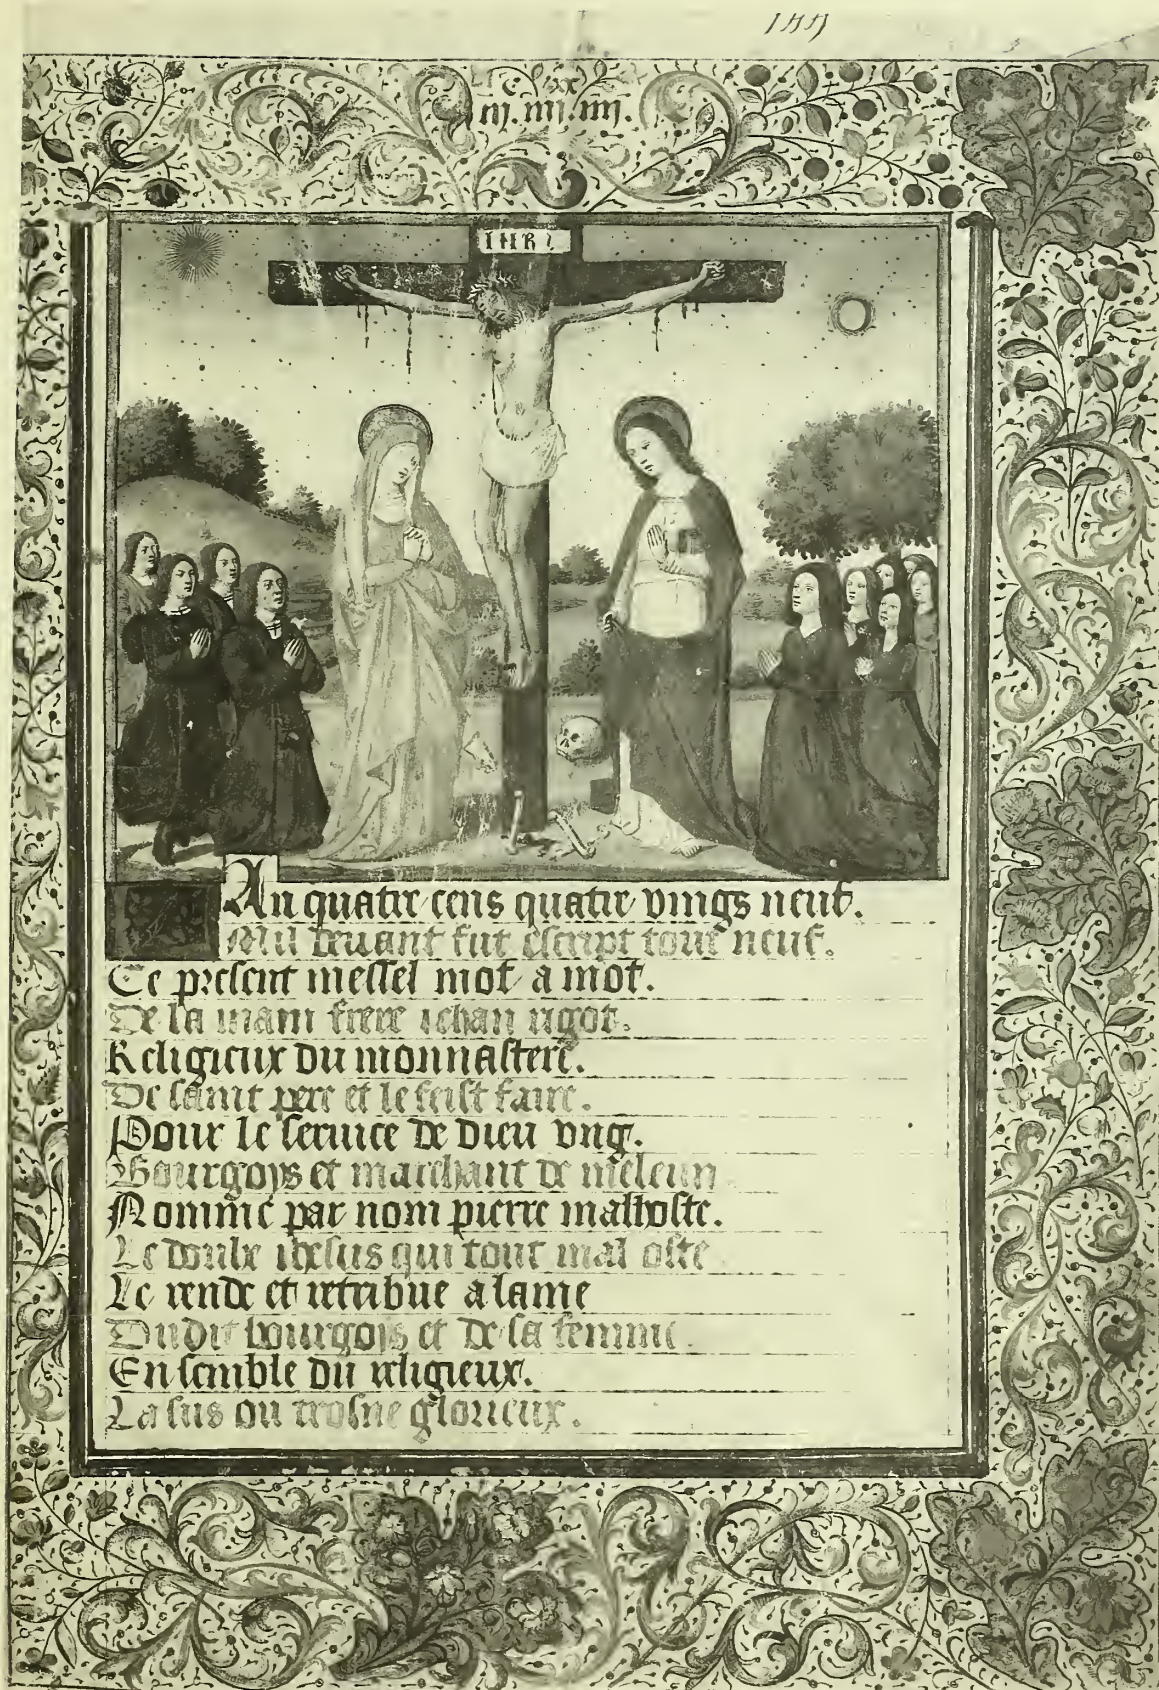 C XX
iij. iiij. iiij.
IHRI
An quatre cens quatre vings neuf.
Mil deuant fut escript tout neuf.
Ce present messel mot a mot.
De la main frere iehan rigot.
Religieux du monnastere.
De saint pere et le feist faire.
Pour le seruice de dieu vng.
Bourgoys et marchant de meleun
Nomme par nom pierre malhoste.
Le doulx ihesus qui tout mal oste
Le rende et retribue a lame
Dudit bourgois et de sa femme.
Ensemble du religieux.
La sus ou trosne glorieux.